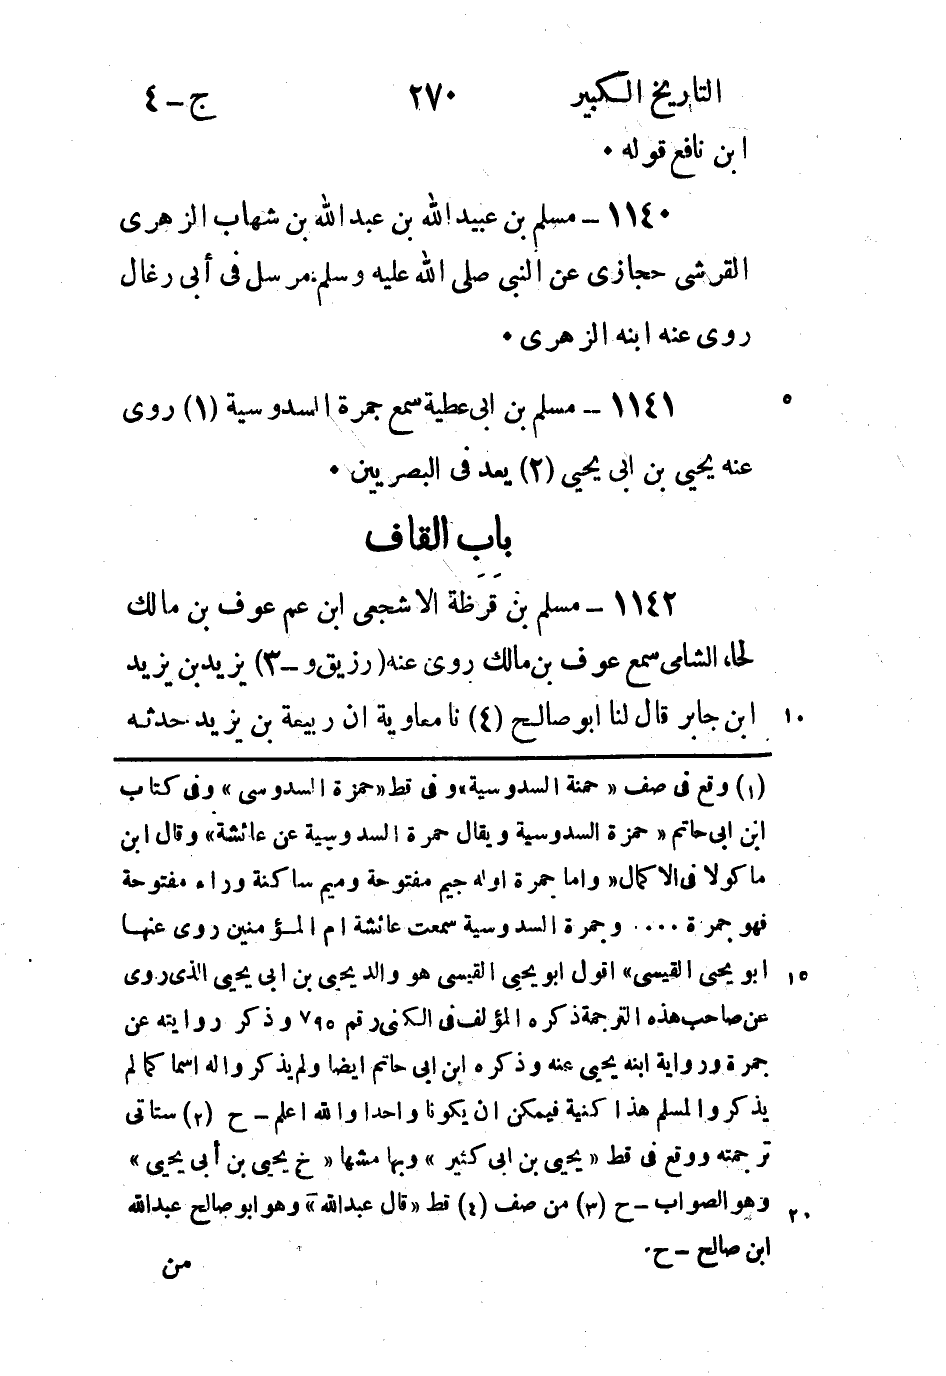 التاريخ الكبير ٢٧٠ ج-٤
ابن نافع قوله ٠
١١٤٠ - مسلم بن عبيد الله بن عبد الله بن شهاب الزهرى
القرشى حجازى عن النبى صلى الله عليه وسلم مرسل فى أبى رغال
روى عنه ابنه الزهرى ٠
١١٤١ - مسلم بن ابى عطية سمع جمرة السدوسية (١) روى ٥
عنه يحيى بن ابى يحيى (٢) يعد فى البصريين ٠
باب القاف
١١٤٢ - مسلم بن قَرَظة الاشجعى ابن عم عوف بن مالك
لحا، الشامى سمع عوف بن مالك روى عنه (رزيق و-٣) يزيد بن يزيد
ابن جابر قال لنا ابو صالح (٤) نا معاوية ان ربيعة بن يزيد حدثه ١٠
(١) وقع فى صف « حمنة السدوسية » و فى قط «حمزة السدوسى » وفى كتاب
ابن ابى حاتم « حمزة السدوسية ويقال حمرة السدوسية عن عائشة» وقال ابن
ماكولا فى الاكمال « واما جمرة اوله جيم مفتوحة وميم ساكنة وراء مفتوحة
فهو جمرة .... وجمرة السدوسية سمعت عائشة ام المؤمنين روى عنها
ابو يحيى القيسى» اقول ابو يحيى القيسى هو والد يحيى بن ابى يحيى الذى روى ١٥
عن صاحب هذه الترجمة ذكره المؤلف فى الكنى رقم ٧٩٥ وذكر روايته عن
جمرة ورواية ابنه يحيى عنه وذكره ابن ابى حاتم ايضا ولم يذكروا له اسما كما لم
يذكروا لمسلم هذا كنية فيمكن ان يكونا واحدا والله اعلم - ح (٢) ستاتى
ترجمته ووقع فى قط « يحيى بن ابى كثير » وبها مشها « خ يحيى بن أبى يحيى »
وهو الصواب - ح (٣) من صف (٤) قط « قال عبدالله » وهو ابو صالح عبدالله ٢٠
ابن صالح - ح٠
من